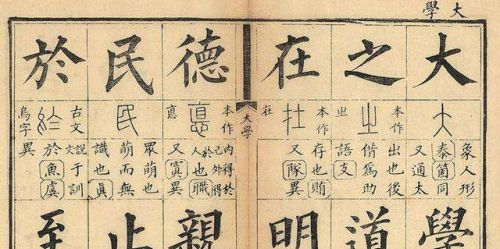 大學
大
象人形
泰箇同
又通太
學
之
本作
㞢
出也後
借爲助
語支
道
在
本作
在
存也賄
又隊異
明
大學
德
本作
悳
內得於
己外得於
人也職
又寘異
親
民
眾萌也
萌而無
識也真
止
於
古文
烏字
說文于訓
於魚虞
異
至